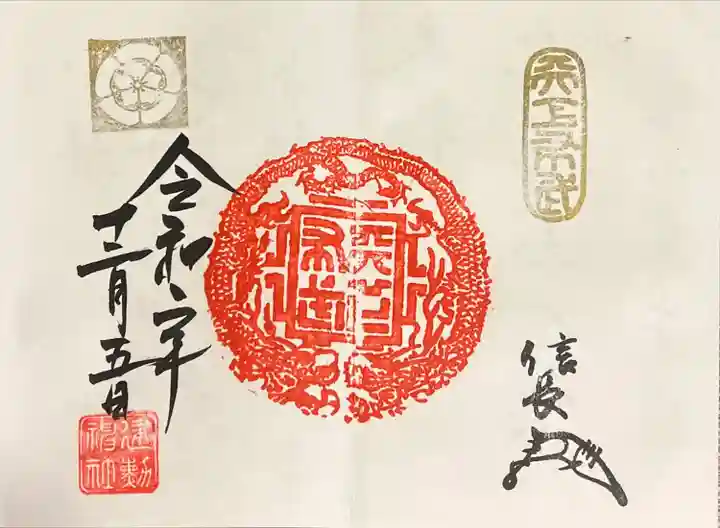 天下布武
信長
天下布武
令和二年
十二月五日
建勲神社